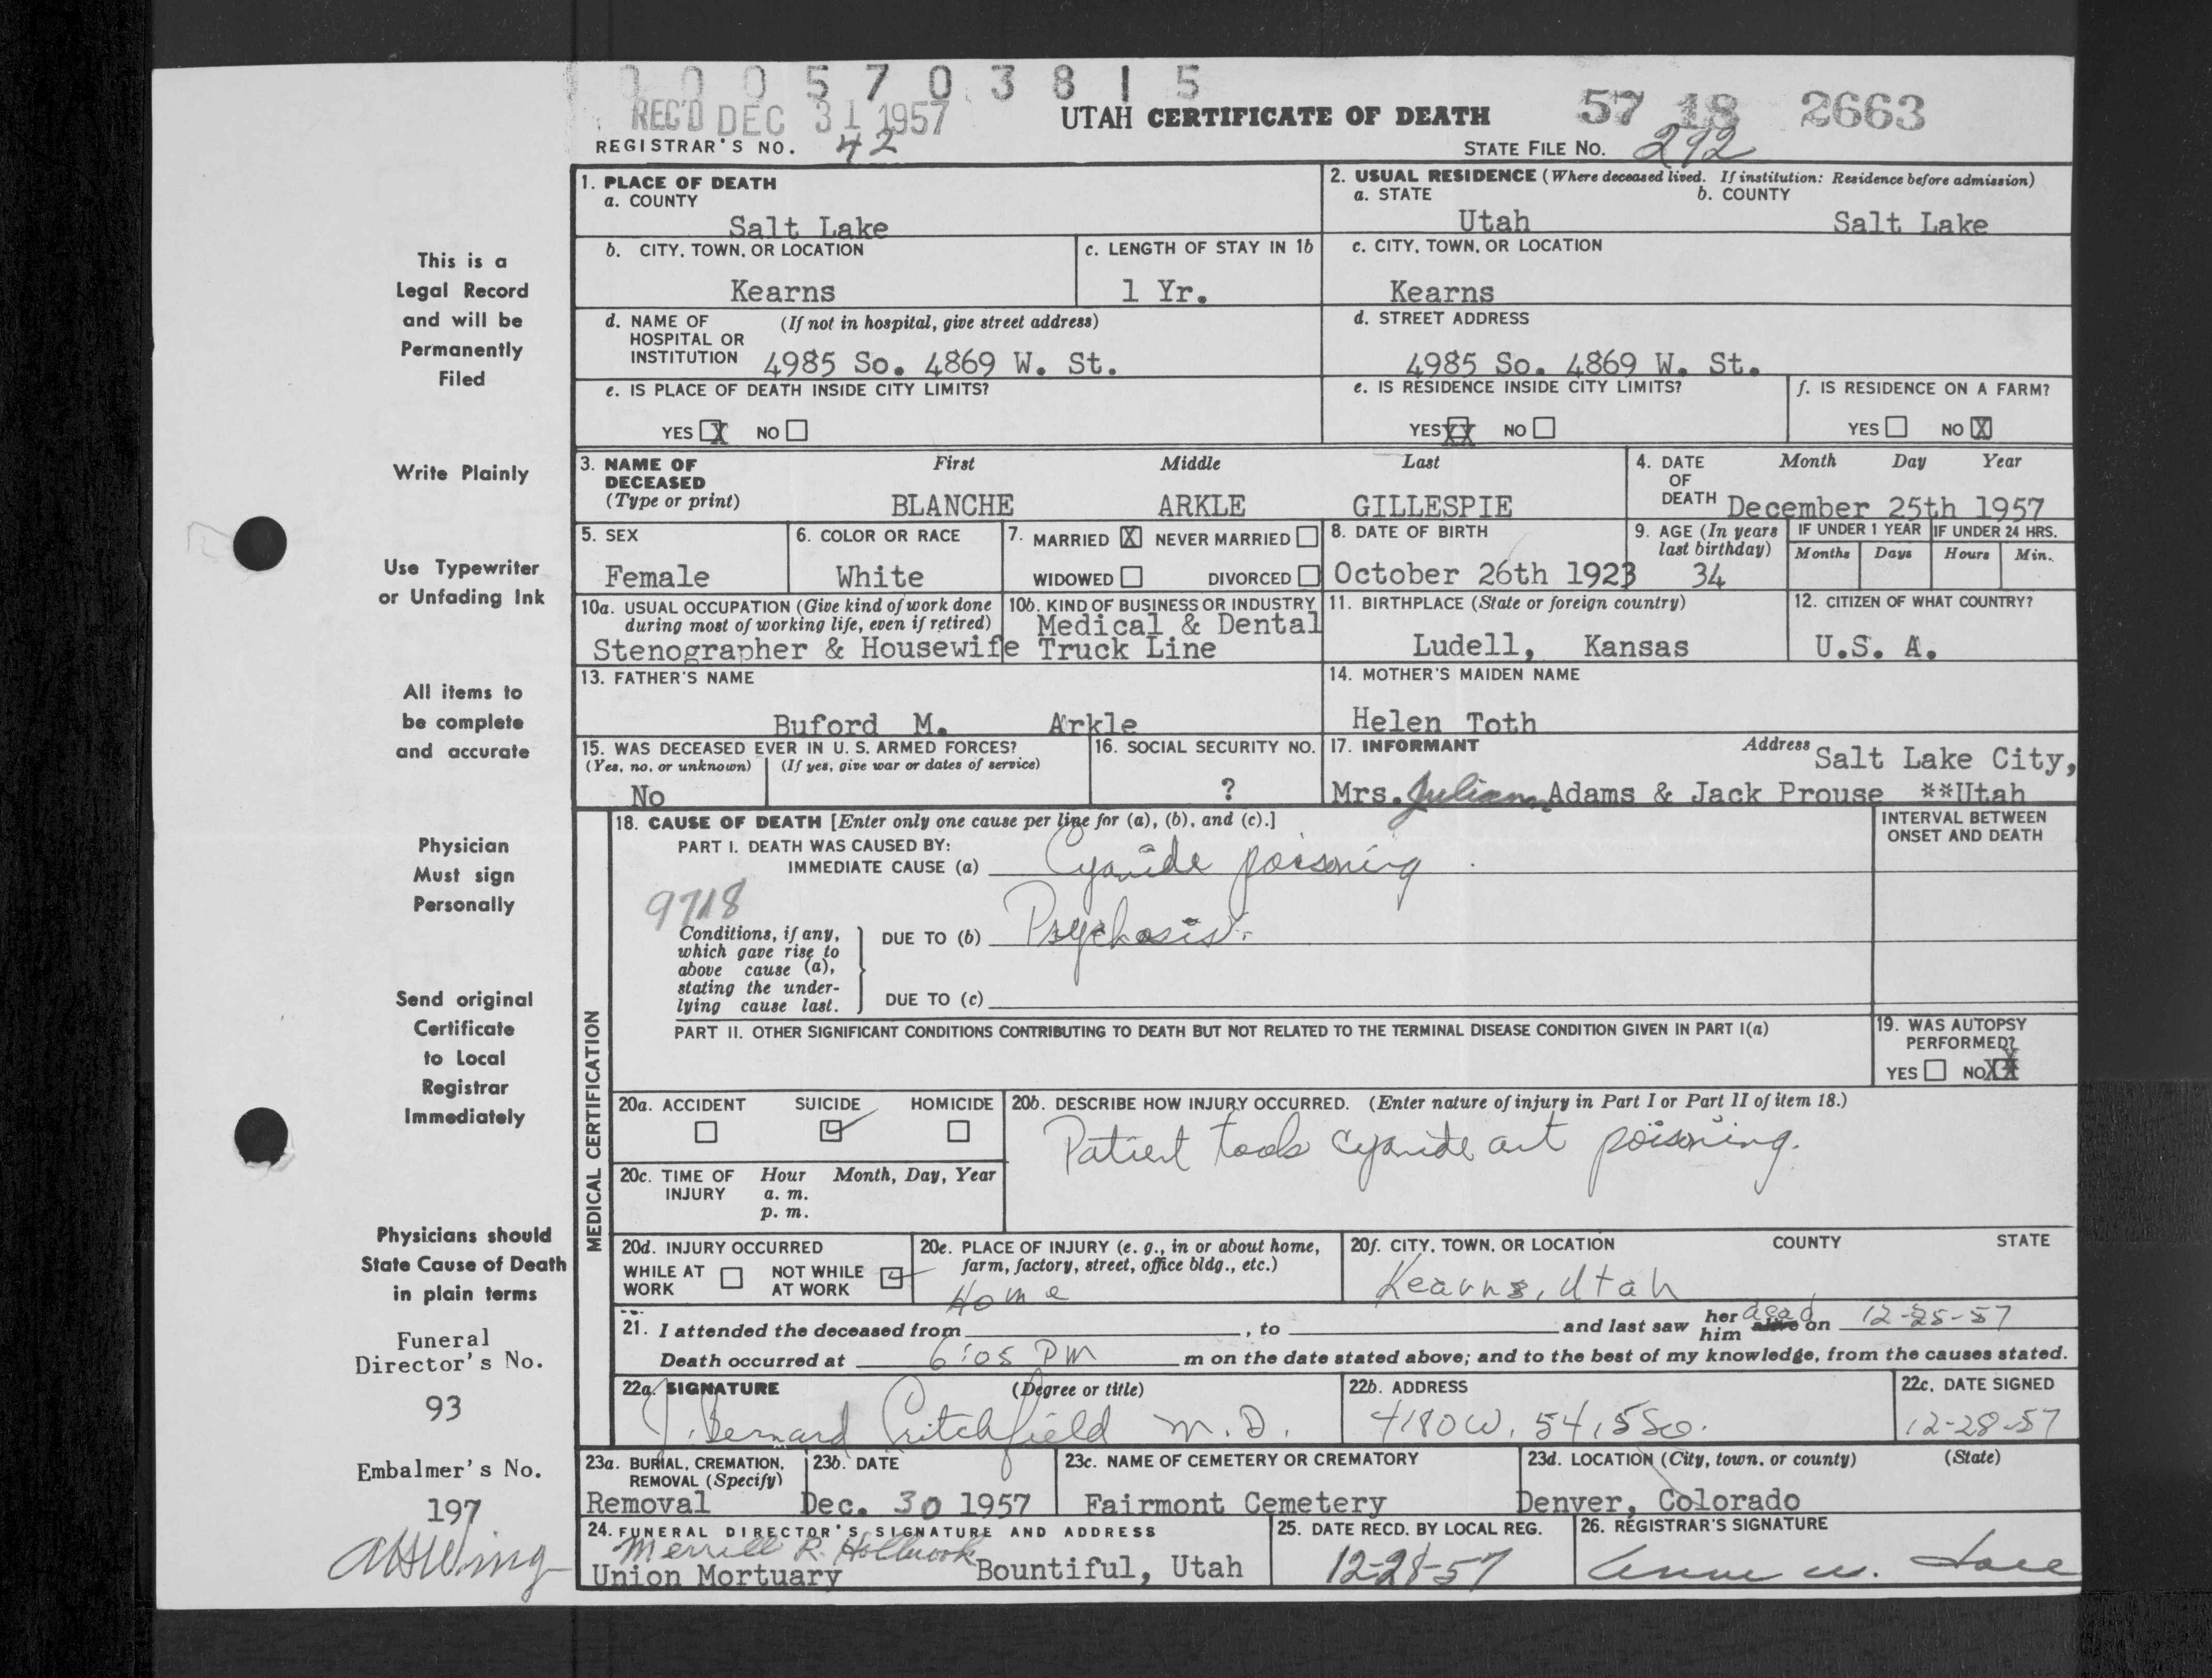 0 0 0 5 7 0 3 8 1 5
REC'D DEC 31 1957
UTAH CERTIFICATE OF DEATH
57 18 2663
REGISTRAR'S NO. 42
STATE FILE NO. 292
This is a
Legal Record
and will be
Permanently
Filed
Write Plainly
Use Typewriter
or Unfading Ink
All items to
be complete
and accurate
Physician
Must sign
Personally
Send original
Certificate
to Local
Registrar
Immediately
Physicians should
State Cause of Death
in plain terms
Funeral
Director's No.
93
Embalmer's No.
197
1. PLACE OF DEATH
a. COUNTY
Salt Lake
2. USUAL RESIDENCE (Where deceased lived. If institution: Residence before admission)
a. STATE b. COUNTY
Utah Salt Lake
b. CITY, TOWN, OR LOCATION
Kearns
c. LENGTH OF STAY IN 1b
1 Yr.
c. CITY, TOWN, OR LOCATION
Kearns
d. NAME OF (If not in hospital, give street address)
HOSPITAL OR
INSTITUTION 4985 So. 4869 W. St.
d. STREET ADDRESS
4985 So. 4869 W. St.
e. IS PLACE OF DEATH INSIDE CITY LIMITS?
YES X NO
e. IS RESIDENCE INSIDE CITY LIMITS?
YES XX NO
f. IS RESIDENCE ON A FARM?
YES NO X
3. NAME OF DECEASED
(Type or print)
First Middle Last
BLANCHE ARKLE GILLESPIE
4. DATE OF DEATH
Month Day Year
December 25th 1957
5. SEX
Female
6. COLOR OR RACE
White
7. MARRIED X NEVER MARRIED
WIDOWED DIVORCED
8. DATE OF BIRTH
October 26th 1923
9. AGE (In years
last birthday)
34
IF UNDER 1 YEAR IF UNDER 24 HRS.
Months Days Hours Min.
10a. USUAL OCCUPATION (Give kind of work done
during most of working life, even if retired)
Stenographer & Housewife
10b. KIND OF BUSINESS OR INDUSTRY
Medical & Dental
Truck Line
11. BIRTHPLACE (State or foreign country)
Ludell, Kansas
12. CITIZEN OF WHAT COUNTRY?
U.S. A.
13. FATHER'S NAME
Buford M. Arkle
14. MOTHER'S MAIDEN NAME
Helen Toth
15. WAS DECEASED EVER IN U.S. ARMED FORCES?
(Yes, no, or unknown) (If yes, give war or dates of service)
No
16. SOCIAL SECURITY NO.
?
17. INFORMANT Address Salt Lake City,
Mrs. Adams & Jack Prouse **Utah
MEDICAL CERTIFICATION
18. CAUSE OF DEATH [Enter only one cause per line for (a), (b), and (c).]
INTERVAL BETWEEN
ONSET AND DEATH
PART I. DEATH WAS CAUSED BY:
IMMEDIATE CAUSE (a) Cyanide poisoning
9718
Conditions, if any,
which gave rise to
above cause (a),
stating the under-
lying cause last.
DUE TO (b) Psychosis
DUE TO (c)
PART II. OTHER SIGNIFICANT CONDITIONS CONTRIBUTING TO DEATH BUT NOT RELATED TO THE TERMINAL DISEASE CONDITION GIVEN IN PART I(a)
19. WAS AUTOPSY
PERFORMED?
YES NO XX
20a. ACCIDENT SUICIDE HOMICIDE
20b. DESCRIBE HOW INJURY OCCURRED. (Enter nature of injury in Part I or Part II of item 18.)
Patient took cyanide ant poisoning.
20c. TIME OF INJURY
Hour Month, Day, Year
a. m.
p. m.
20d. INJURY OCCURRED
WHILE AT WORK NOT WHILE AT WORK
20e. PLACE OF INJURY (e. g., in or about home,
farm, factory, street, office bldg., etc.)
Home
20f. CITY, TOWN, OR LOCATION COUNTY STATE
Kearns, Utah
21. I attended the deceased from , to and last saw her him alive dead on 12-25-57
Death occurred at 6:05 PM m on the date stated above; and to the best of my knowledge, from the causes stated.
22a. SIGNATURE (Degree or title)
J. Bernard Critchfield M.D.
22b. ADDRESS
4180 W. 5415 So.
22c. DATE SIGNED
12-28-57
23a. BURIAL, CREMATION,
REMOVAL (Specify)
Removal
23b. DATE
Dec. 30 1957
23c. NAME OF CEMETERY OR CREMATORY
Fairmont Cemetery
23d. LOCATION (City, town, or county) (State)
Denver, Colorado
24. FUNERAL DIRECTOR'S SIGNATURE AND ADDRESS
Merrill R. Holbrook
Union Mortuary Bountiful, Utah
25. DATE RECD. BY LOCAL REG.
12-28-57
26. REGISTRAR'S SIGNATURE